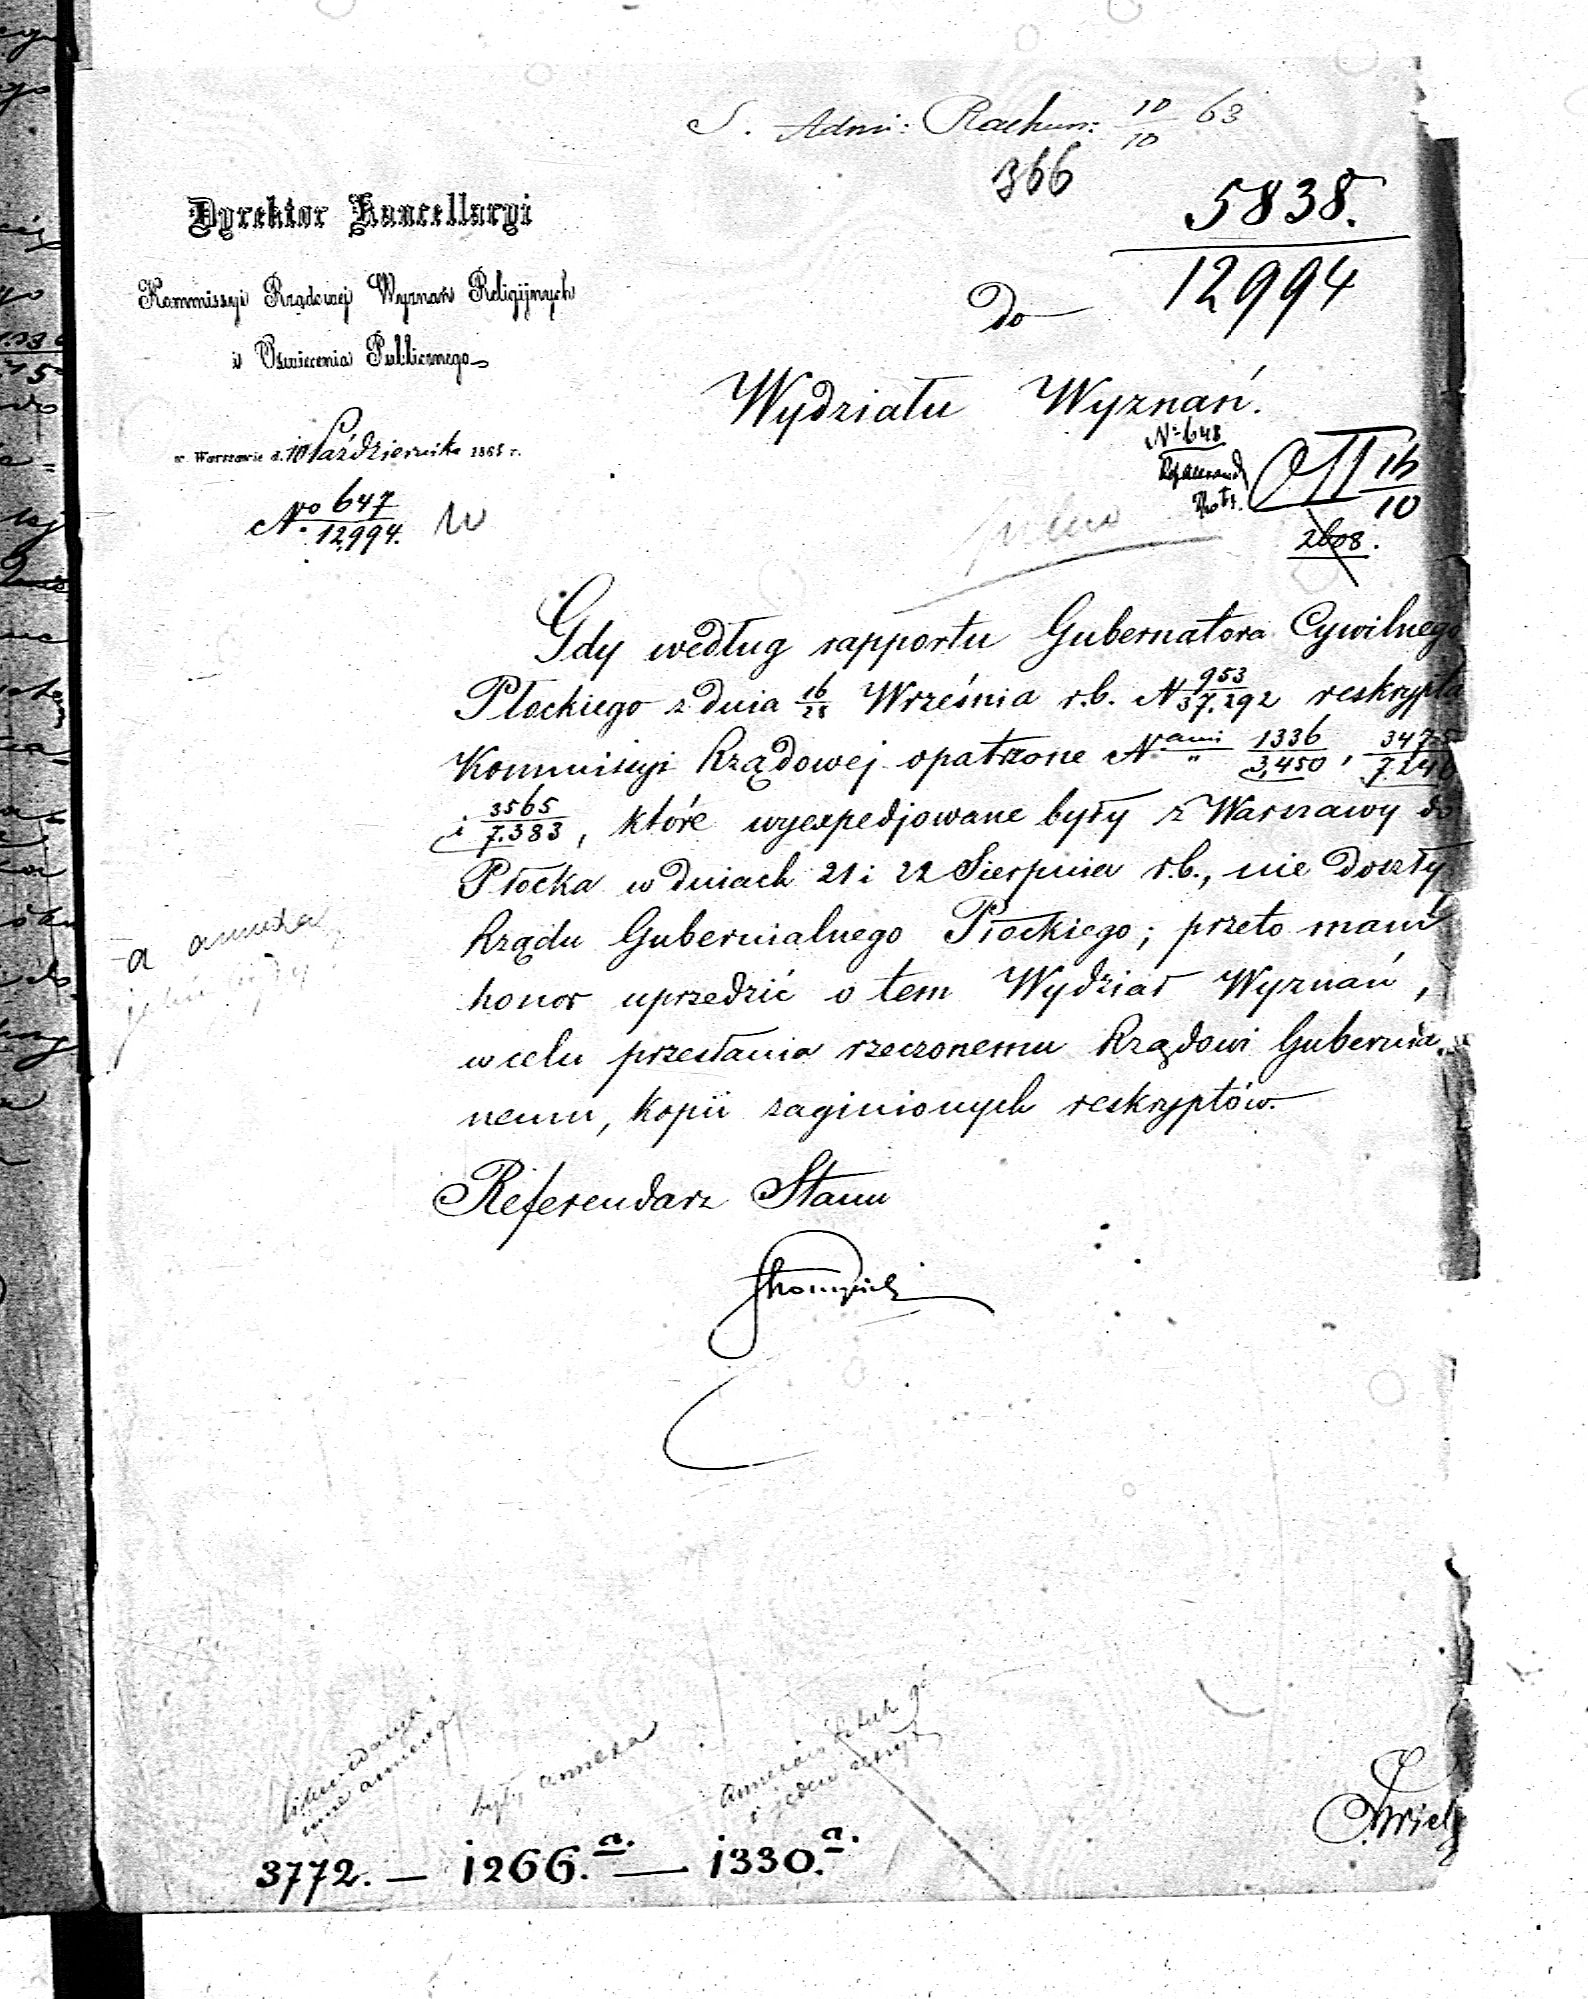 S. Admi: Rachun: 10/10 63
366
5838.
12994
Dyrektor Kancellaryi
Kommissyi Rządowej Wyznań Religijnych
i Oświecenia Publicznego
do
Wydziału Wyznań.
w Warszawie d. 10 Października 1863 r.
No 647/12994.
No 648
16/10
2608.
Gdy według rapportu Gubernatora Cywilnego
Płockiego z dnia 16/28 Września r.b. N 953/37.292 reskrypta
Kommissyi Rządowej opatrzone Nami 1336/3,450, 3475/7240
i 3565/7.383, które wyexpedjowane były z Warszawy do
Płocka w dniach 21 i 22 Sierpnia r.b., nie doszły
Rządu Gubernialnego Płockiego; przeto mam
honor uprzedzić o tem Wydział Wyznań,
w celu przesłania rzeczonemu Rządowi Gubernial
nemu, kopii zaginionych reskryptów.
a annexa
Referendarz Stanu
były annexa
3772. — 1266.a. — 1330.a.